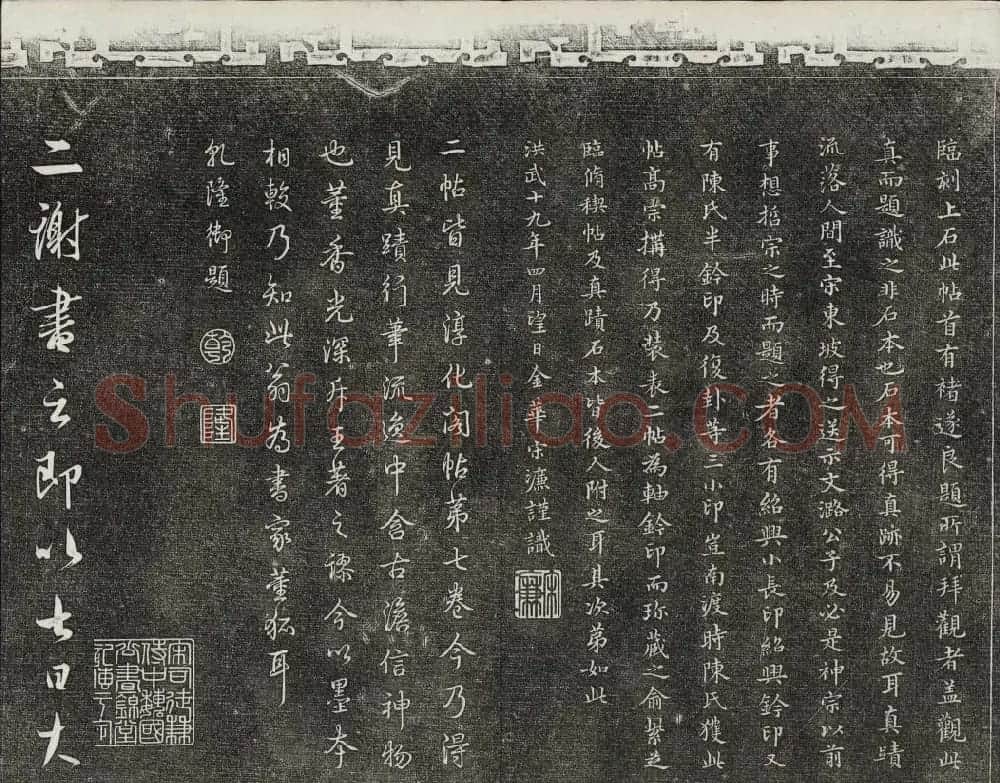 臨刻上石此帖首有褚遂良題所謂拜觀者盖觀此
真而題識之非石本也石本可得真跡不易見故耳真蹟
流落人間至宋東坡得之送示文潞公子及必是神宗以前
事想掐宗之時而題之者各有紹興小長印紹興鈐印又
有陳氏半鈐印及復卦等三小印豈南渡時陳氏獲此
帖高宗搆得乃裝表二帖為軸鈐印而珎藏之俞紫芝
臨脩禊帖及真蹟石本皆後人附之耳其次第如此
洪武十九年四月望日金華宋濂謹識
宋濂
二帖皆見淳化閣帖第七卷今乃得
見真蹟行筆流逸中含古澹信神物
也董香光深斥王著之謬今以墨本
相較乃知此翁為書家董狐耳
乹隆御題
乾
隆
二謝書云即以七日大
宋司徒兼
侍中魏國
公書錦堂
Shufaziliao.COM